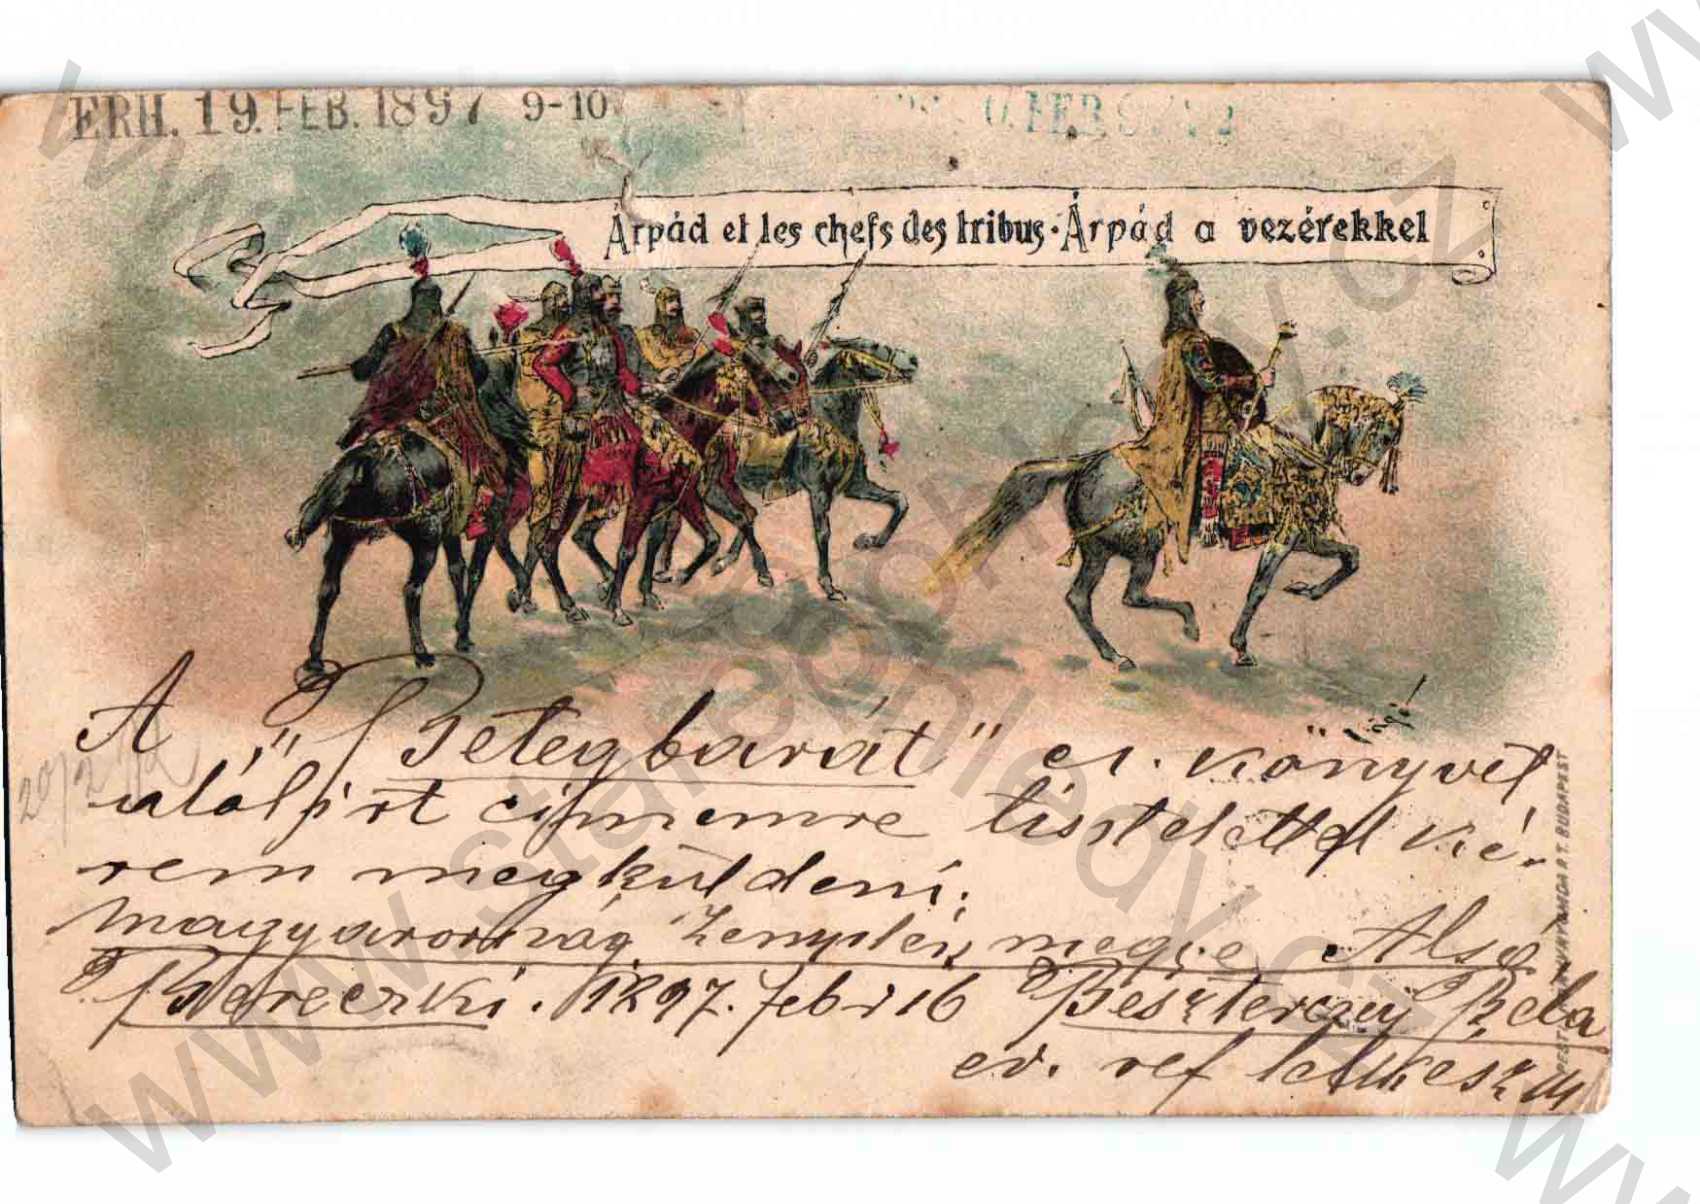 ERH. 19. FEB. 1897 9-10
FEB
Árpád et les chefs des tribus · Árpád a vezérekkel
A "Betegbarát" cz. könyvet
alólirt czimemre tisztelettel ké-
rem megküldeni.
Magyarország Zemplén megye Alsó
Bereczki. 1897. febr 16 Beszterczey Béla
ev. ref lelkész
20/2
PESTI KÖNYVNYOMDA R.T. BUDAPEST
www.starepohledy.cz
www.starepohledy.cz